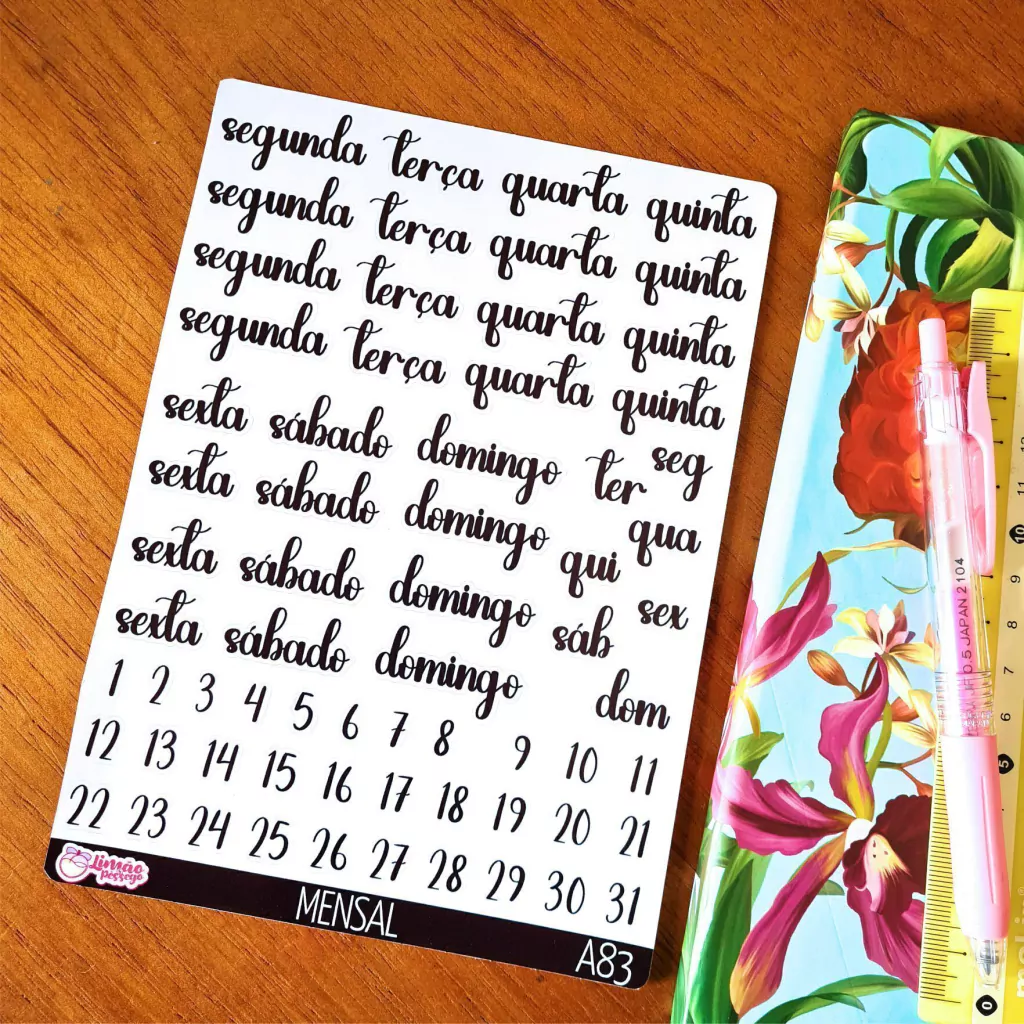 segunda terça quarta quinta
segunda terça quarta quinta
segunda terça quarta quinta
segunda terça quarta quinta
sexta sábado domingo ter seg
sexta sábado domingo qui qua
sexta sábado domingo sáb sex
sexta sábado domingo dom
1 2 3 4 5 6 7 8 9 10 11
12 13 14 15 16 17 18 19 20 21
22 23 24 25 26 27 28 29 30 31
Limão
Pessego
MENSAL
A83
0.5 JAPAN 2104
11
10
9
8
7
6
5
0